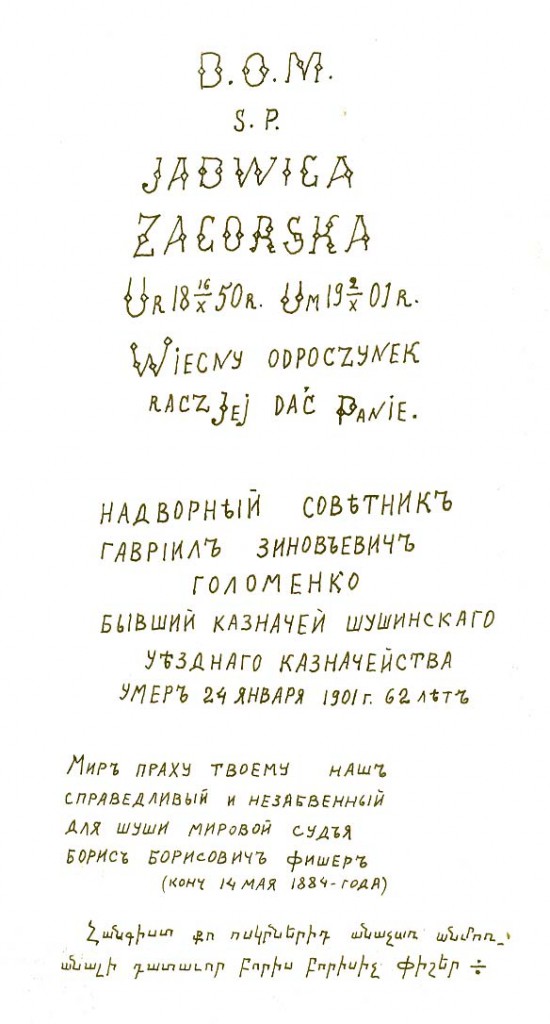 D.O.M.
S.P.
JADWIGA
ZAGORSKA
UR 18 16/X 50R. UM 19 2/X 01R.
WIECNY ODPOCZYNEK
RACZ JEJ DAĆ PANIE.
НАДВОРНЫЙ СОВѢТНИКЪ
ГАВРІИЛЪ ЗИНОВЬЕВИЧЪ
ГОЛОМЕНКО
БЫВШИЙ КАЗНАЧЕЙ ШУШИНСКАГО
УѢЗДНАГО КАЗНАЧЕЙСТВА
УМЕРЪ 24 ЯНВАРЯ 1901 Г. 62 ЛѢТЪ
МИРЪ ПРАХУ ТВОЕМУ НАШЪ
СПРАВЕДЛИВЫЙ И НЕЗАБВЕННЫЙ
ДЛЯ ШУШИ МИРОВОЙ СУДЬЯ
БОРИСЪ БОРИСОВИЧЪ ФИШЕРЪ
(КОНЧ 14 МАЯ 1884-ГОДА)
Հանգիստ քո ոսկրներիդ անաչառ անմոռ_
անալի դատաւոր Բորիս Բորիսիչ Փիշեր ÷